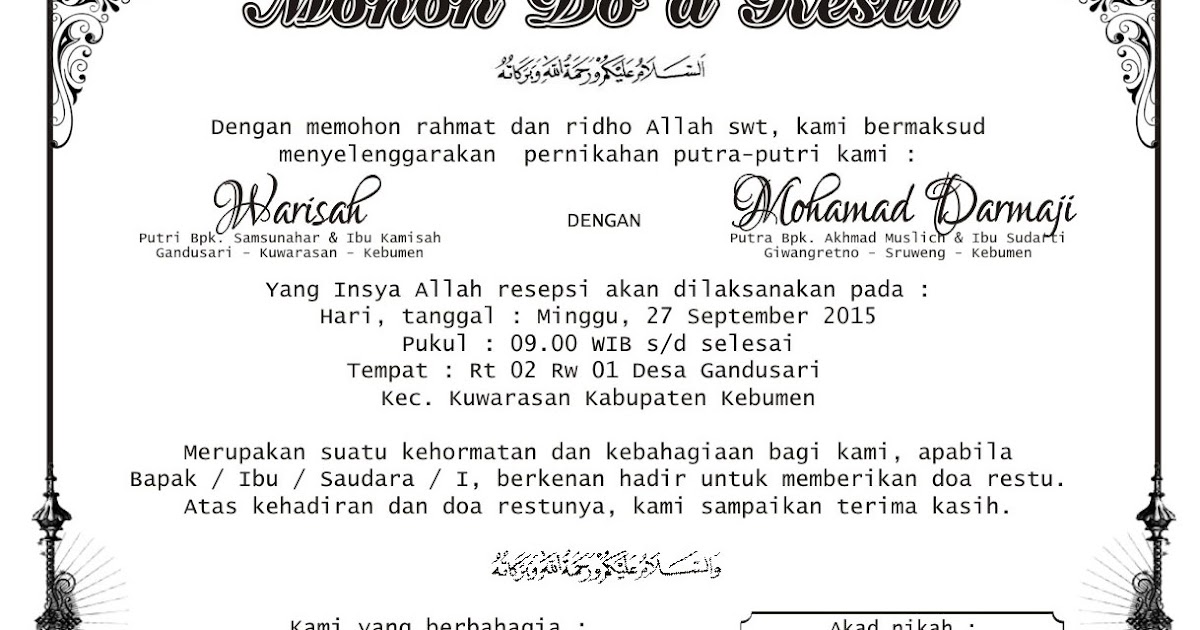 Mohon Do'a Restu
اَلسَّلَامُ عَلَيْكُمْ وَرَحْمَةُ اللهِ وَبَرَكَاتُهُ
Dengan memohon rahmat dan ridho Allah swt, kami bermaksud
menyelenggarakan pernikahan putra-putri kami :
Warisah
Putri Bpk. Samsunahar & Ibu Kamisah
Gandusari - Kuwarasan - Kebumen
DENGAN
Mohamad Darmaji
Putra Bpk. Akhmad Muslich & Ibu Sudarti
Giwangretno - Sruweng - Kebumen
Yang Insya Allah resepsi akan dilaksanakan pada :
Hari, tanggal : Minggu, 27 September 2015
Pukul : 09.00 WIB s/d selesai
Tempat : Rt 02 Rw 01 Desa Gandusari
Kec. Kuwarasan Kabupaten Kebumen
Merupakan suatu kehormatan dan kebahagiaan bagi kami, apabila
Bapak / Ibu / Saudara / I, berkenan hadir untuk memberikan doa restu.
Atas kehadiran dan doa restunya, kami sampaikan terima kasih.
وَالسَّلَامُ عَلَيْكُمْ وَرَحْمَةُ اللهِ وَبَرَكَاتُهُ
Kami yang berbahagia :
Akad nikah :